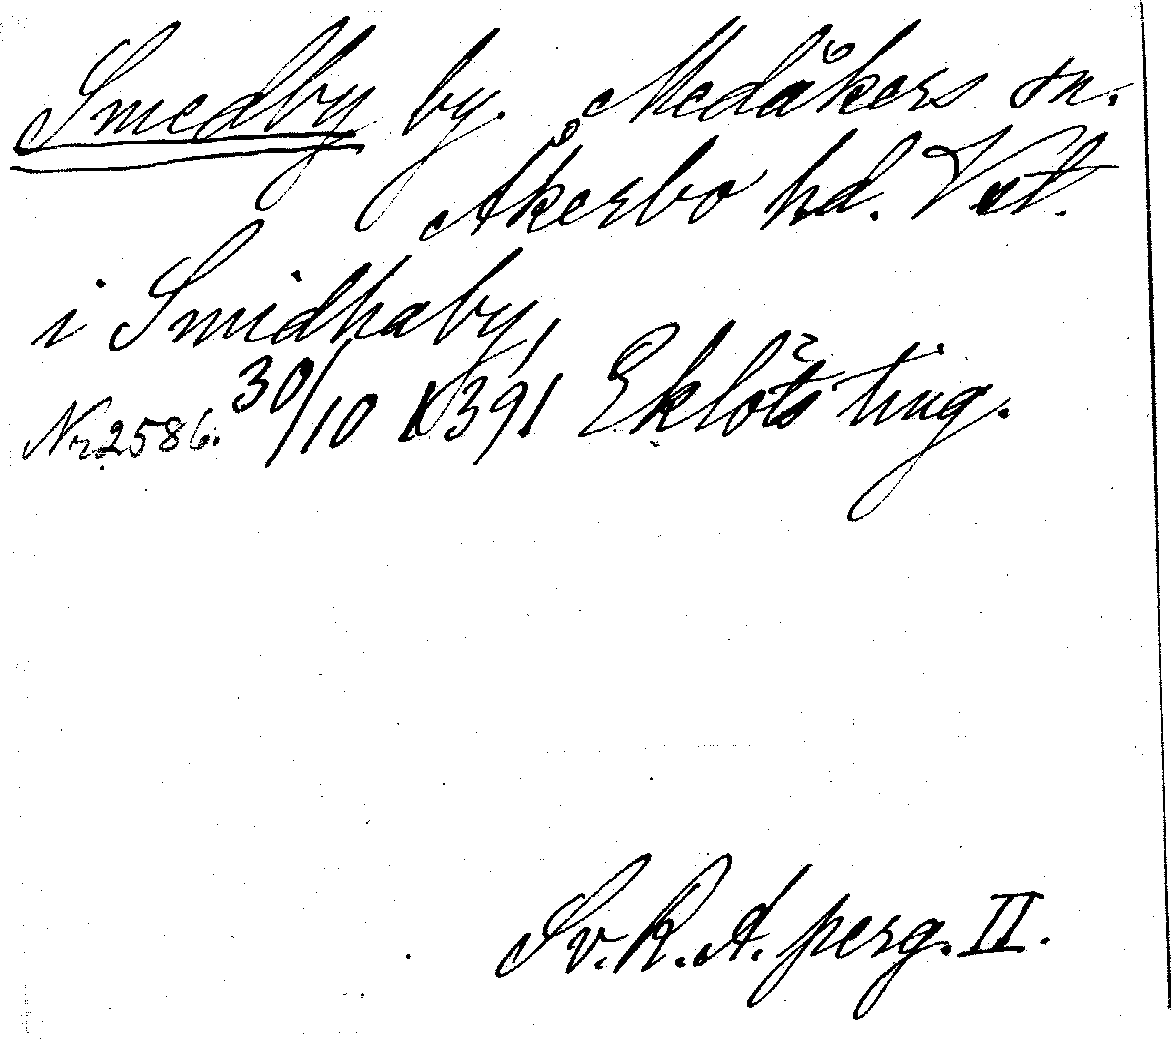 Smedby by. Medåkers sn.
Åkerbo hd. Vstl.
i Smidhaby
Nr 2586. 30/10 1391 Eklöts ting.
Sv. R. A. perg. II.